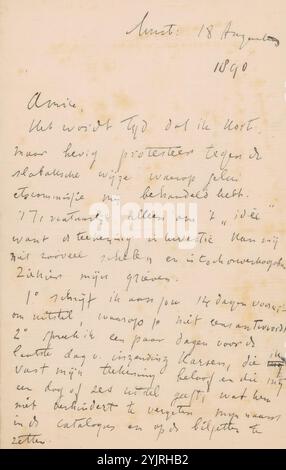 Amst: 18 Augustus
1890
Amice,
Het wordt tijd dat ik kort,
maar hevig protesteer tegen de
wijze waarop
mij behandeld hebt.
't Is natuurlijk alleen om 't "idée"
want de teekening
niet zooveel schelen en is toch
Ziehier mijn grieven.
1° schrijf ik aan jou 14 dagen vooruit
om uitstel, waarop je niet eens antwoordt
2° spreek ik een paar dagen voor de
laatste dag v. inzending Karsen, die
vast mijn teekening belooft en die mij
een dag of zes uitstel geeft, wat hem
niet verhindert te vergeten mijn naam
in de catalogus en op de biljetten te
zetten.
alamy
Image ID: 2YJRHB2
www.alamy.com